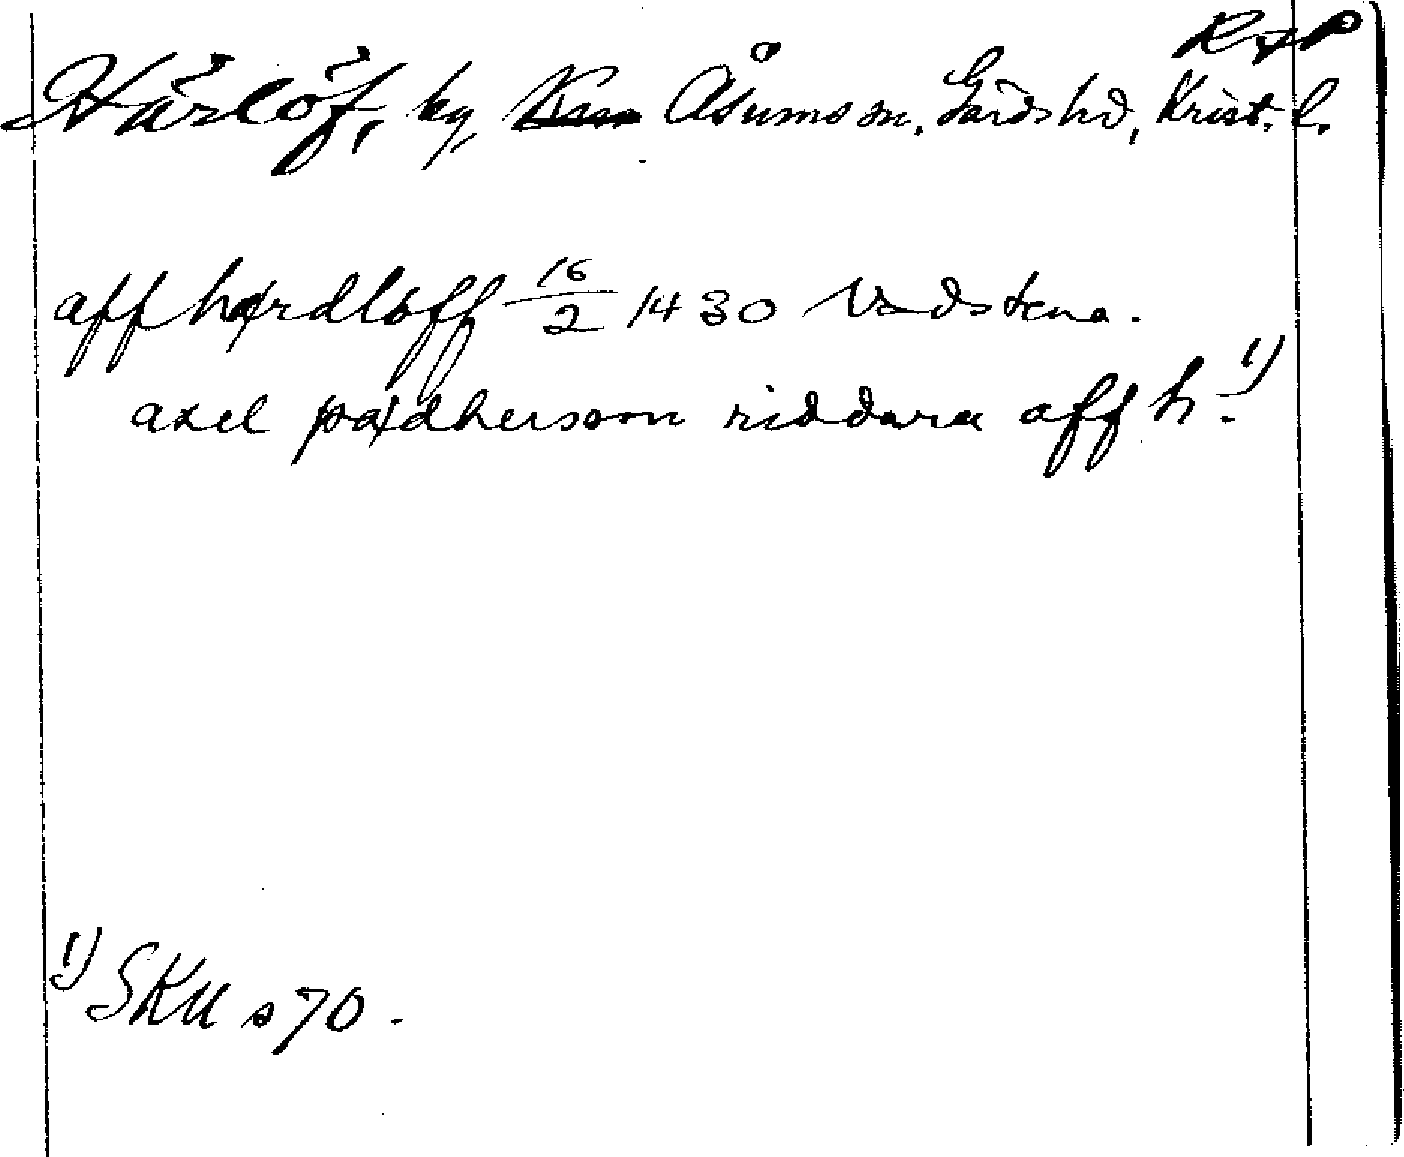 RäP
Härlöf, by, Åsums sn. Gärds hd, Krist. l.
aff hærdløff 16/2 1430 Vadstena.
axel pædhersson riddara aff h. 1)
1) SKU s 70.